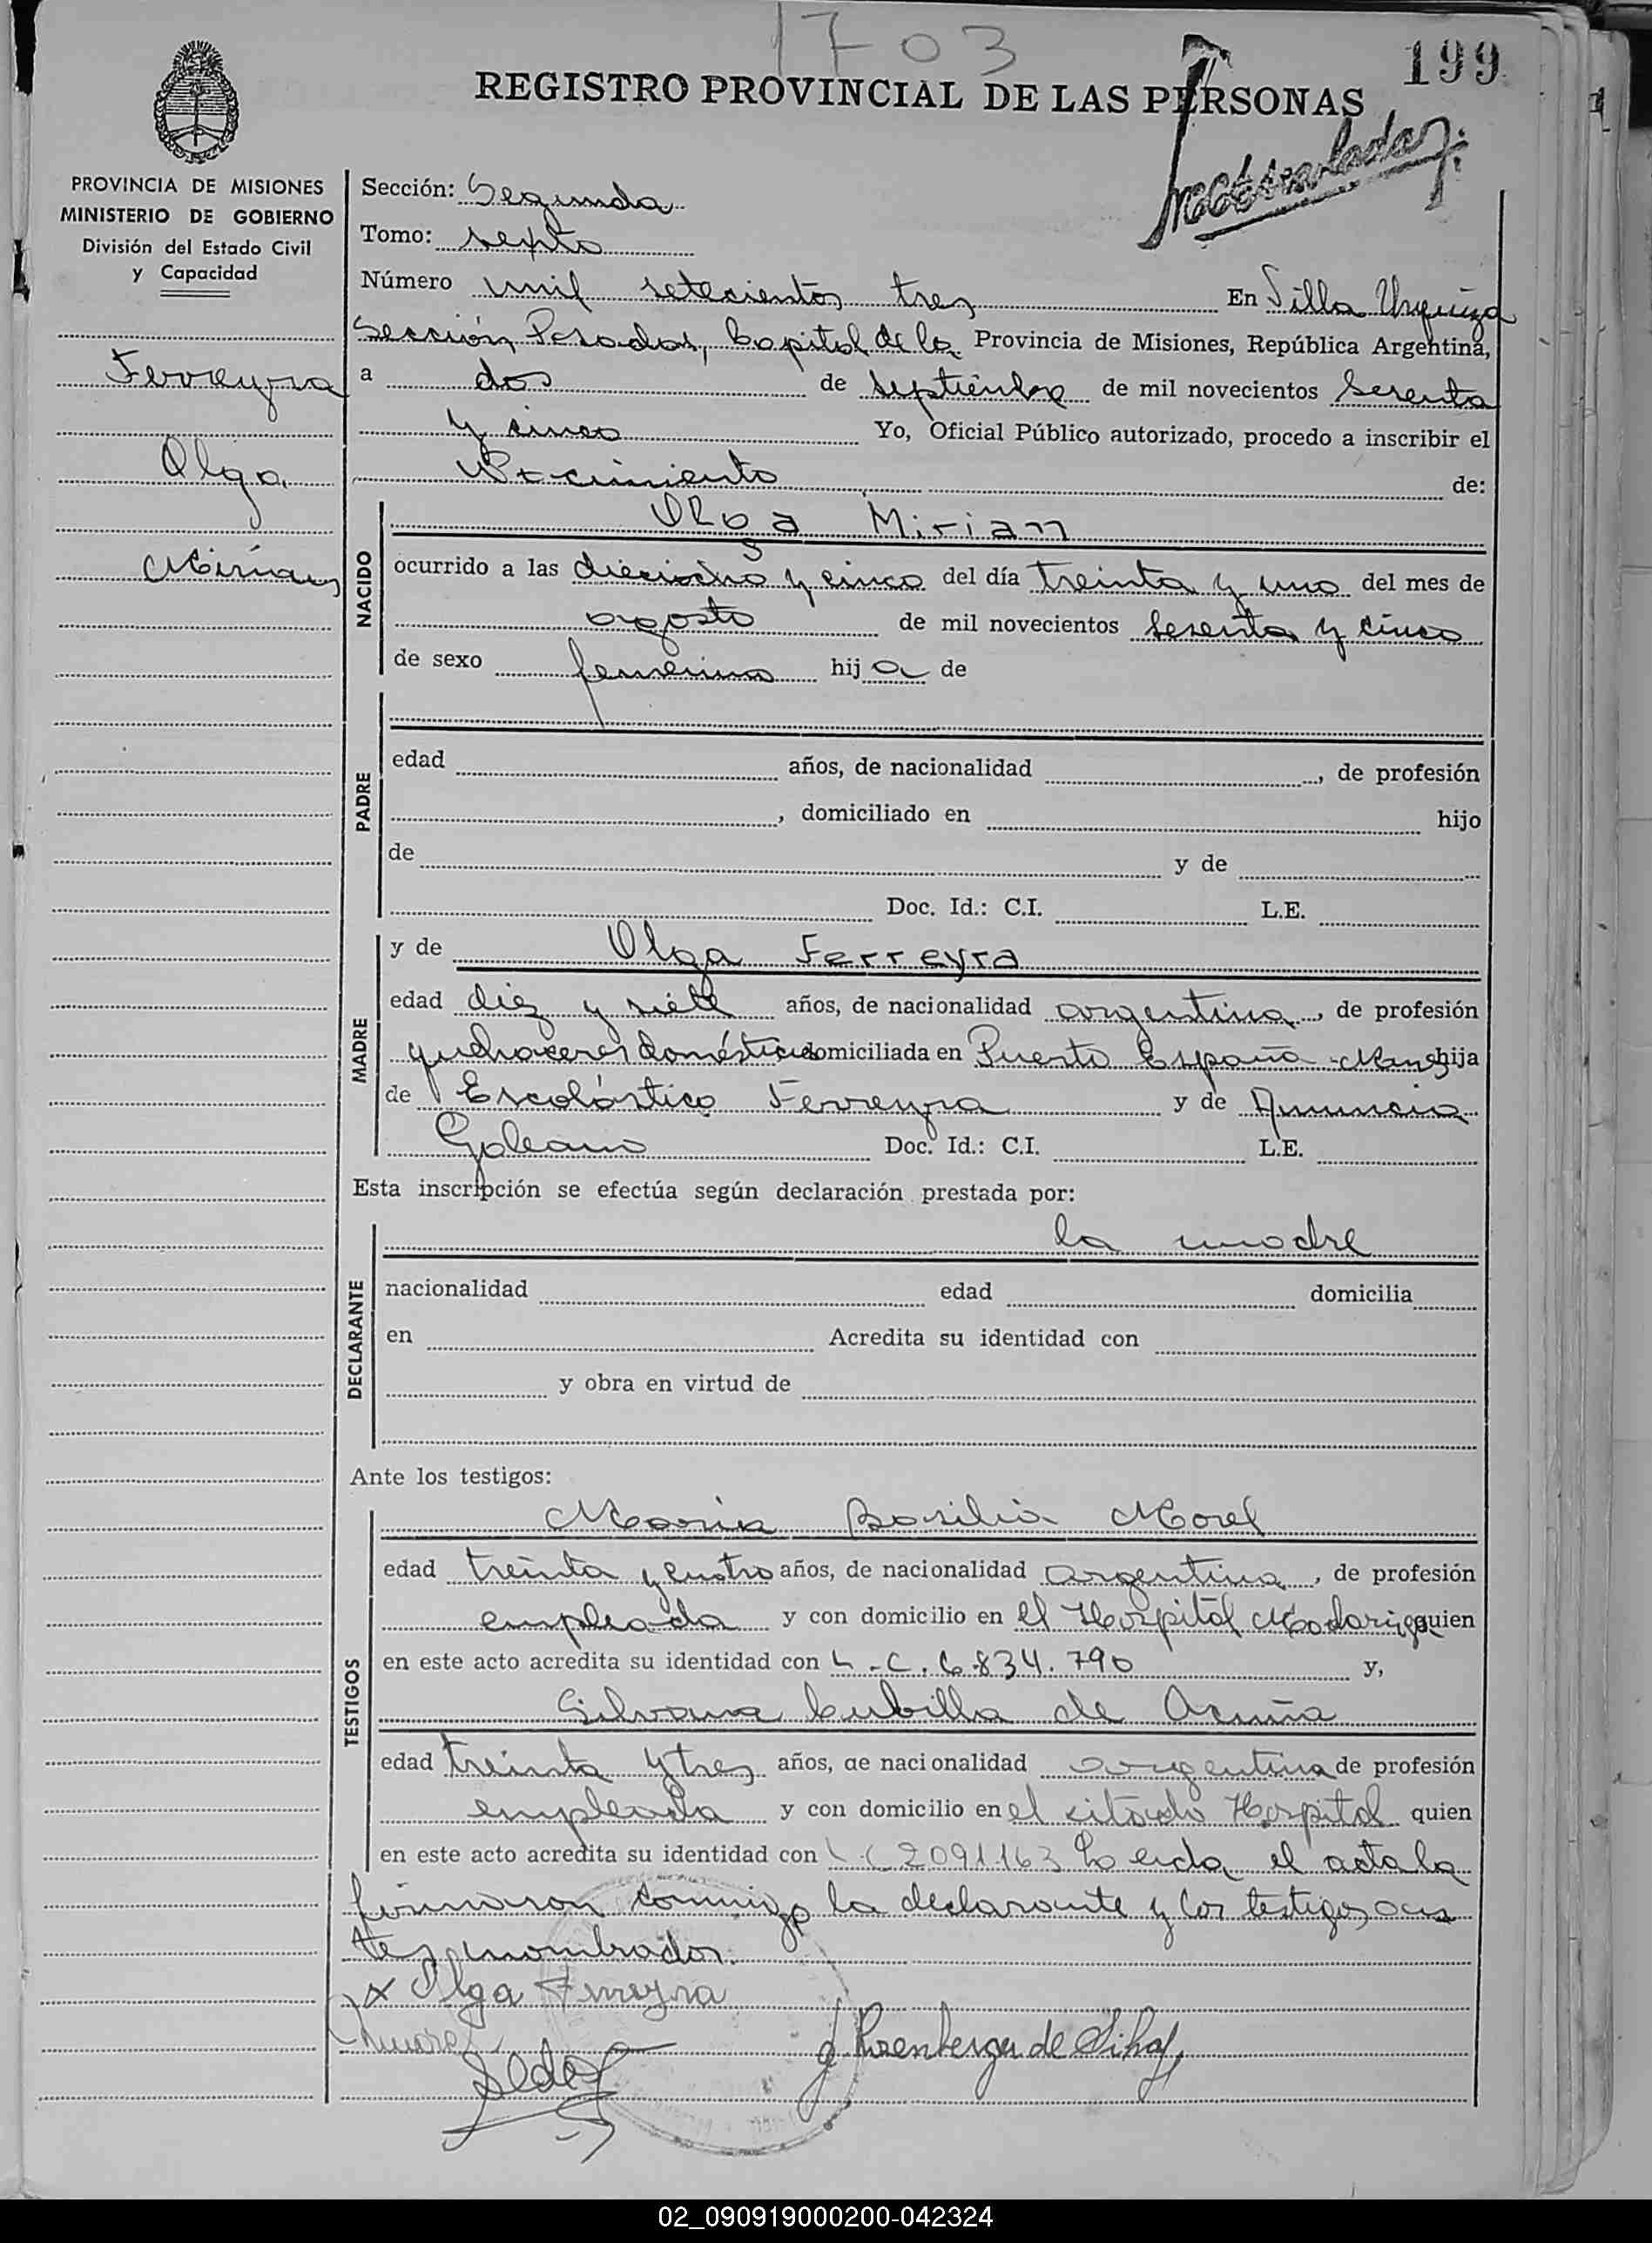 1703
199
REGISTRO PROVINCIAL DE LAS PERSONAS
PROVINCIA DE MISIONES
MINISTERIO DE GOBIERNO
División del Estado Civil
y Capacidad
Ferreyra
Olga
Mirian
Sección: Segunda
Tomo: septo
Número mil setecientos tres En Villa Urquiza
Sección Posadas, Capital de la Provincia de Misiones, República Argentina,
a dos de septiembre de mil novecientos sesenta
y cinco Yo, Oficial Público autorizado, procedo a inscribir el
Nacimiento de:
NACIDO
Olga Mirian
ocurrido a las dieciocho y cinco del día treinta y uno del mes de
agosto de mil novecientos sesenta y cinco
de sexo femenino hija de
PADRE
edad años, de nacionalidad , de profesión
, domiciliado en hijo
de y de
Doc. Id.: C.I. L.E.
MADRE
y de Olga Ferreyra
edad diez y siete años, de nacionalidad argentina, de profesión
quehaceres domésticos domiciliada en Puerto España - hija
de Escolástico Ferreyra y de Anuncia
Galeano Doc. Id.: C.I. L.E.
Esta inscripción se efectúa según declaración prestada por:
DECLARANTE
la madre
nacionalidad edad domicilia
en Acredita su identidad con
y obra en virtud de
Ante los testigos:
TESTIGOS
María Basilia Morel
edad treinta y cuatro años, de nacionalidad argentina, de profesión
empleada y con domicilio en el Hospital Madariaga quien
en este acto acredita su identidad con L.C. 6.834.790 y,
Silvana Cubilla de Acuña
edad treinta y tres años, de nacionalidad argentina de profesión
empleada y con domicilio en el citado Hospital quien
en este acto acredita su identidad con L.C 2091163 Leida el acta la
firmaron conmigo la declarante y los testigos an
tes nombrados.
x Olga Ferreyra
02_090919000200-042324